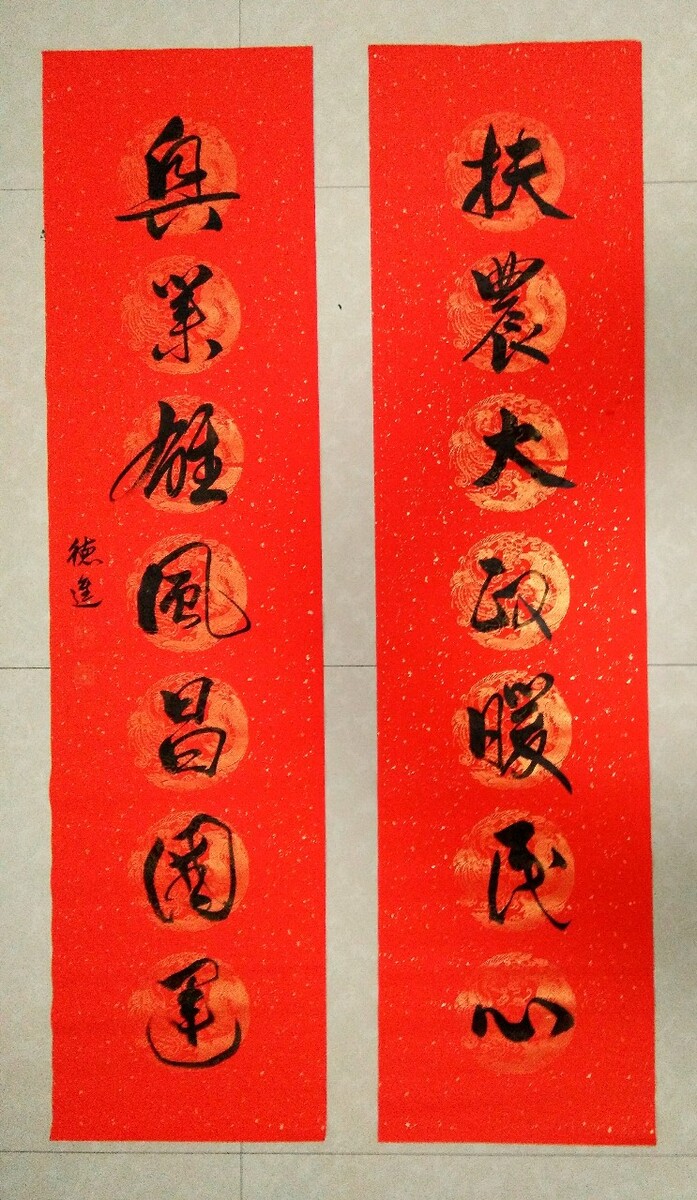 扶農大政暖民心
興業雄風昌國運
德進